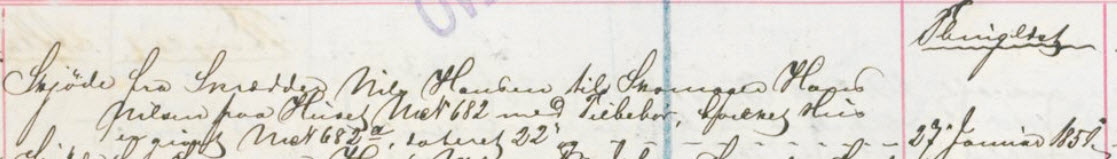 Thinglæst
Skjöde fra Snedker Nils Hansen til Skomager Hans
Nilsen paa Huset Mat N 682 med Tilbehør, hvilket Huus
er givet Mat N 682a, dateret 22
27 Januar 1851